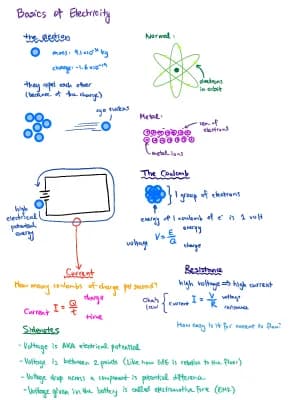 Basics of Electricity
the electron
mass: 9.1×10⁻³¹ kg
charge: -1.6×10⁻¹⁹
they repel each other
(because of the charge)
Normal:
electrons
in orbit
Metal:
sea of
electrons
metal ions
The Coulomb
} 1 group of electrons
energy of 1 coulomb of e⁻ is 1 volt
voltage V = E/Q energy
charge
high
electrical
potential
energy
Current
How many coulombs of charge per second?
Current I = Q/t charge
time
Resistance
high voltage ⇒ high current
Ohm's
law { current I = V/R voltage
resistance
How easy is it for current to flow?
Sidenotes
- Voltage is AKA electrical potential
- Voltage is between 2 points (Like how GPE is relative to the floor)
- Voltage drop across a component is potential difference
- Voltage given in the battery is called electromotive force (EMF)